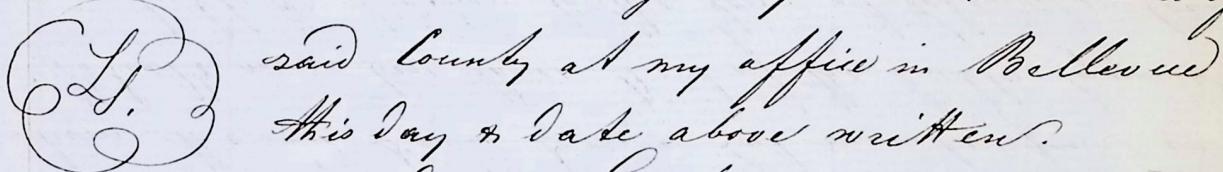 L.S.
said County at my office in Bellevue
this day & date above written.